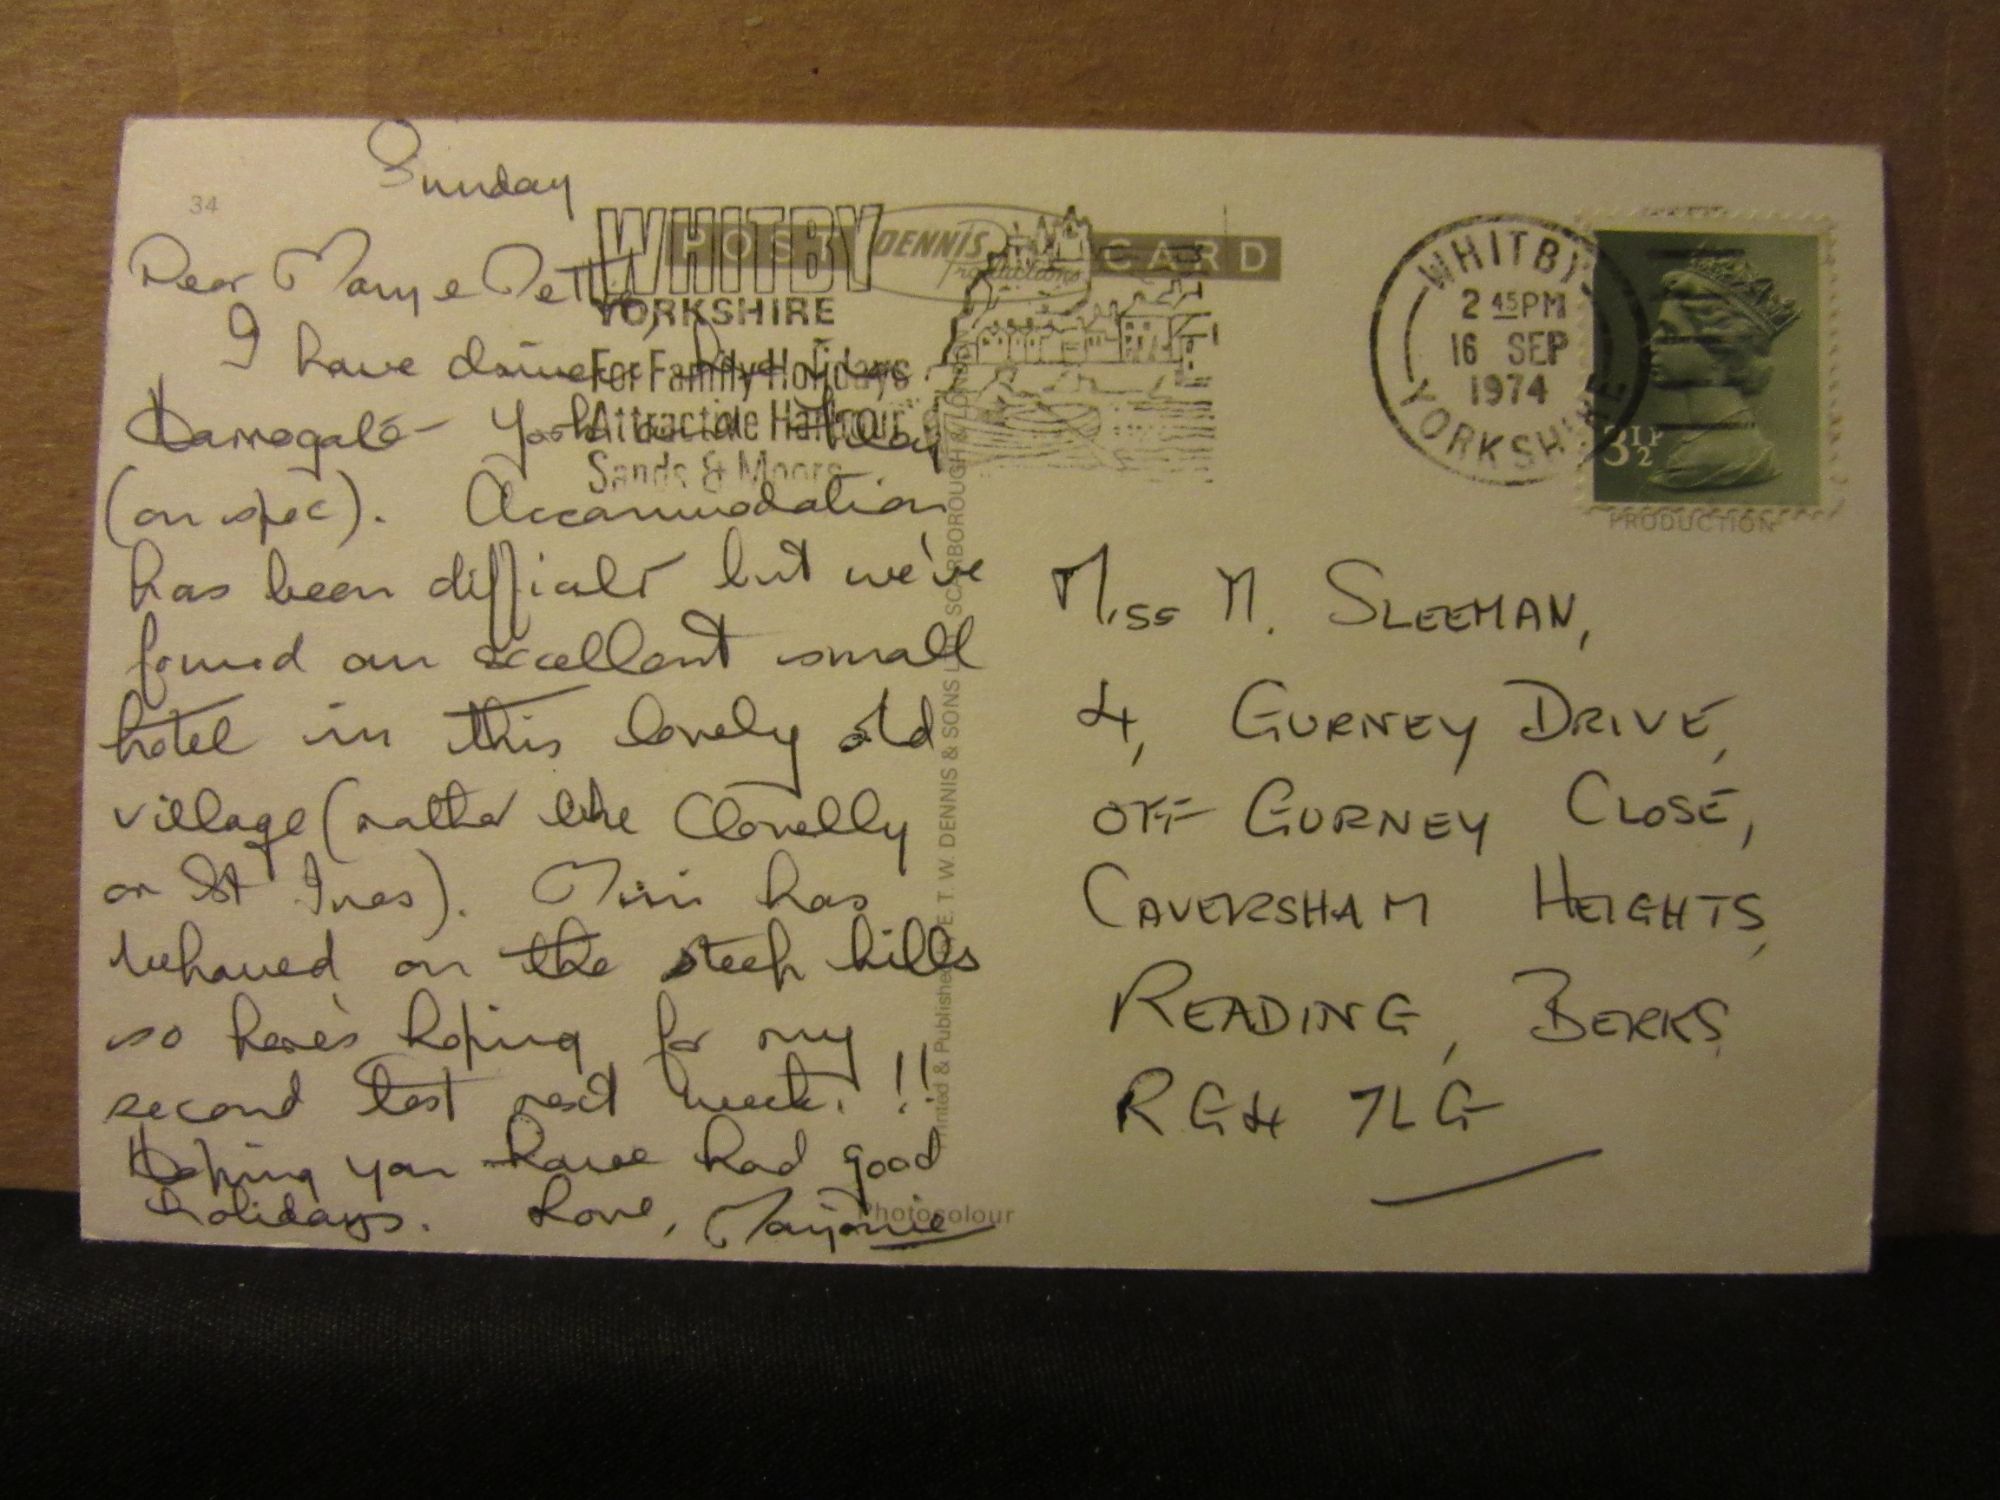 34
Sunday
Dear Mary e
I have driven
Harrogate York
(on spec). Accommodation
has been difficult but we've
found an excellent small
hotel in this lovely old
village (rather like Clovelly
or St Ives). Mini has
behaved on the steep hills
so here's hoping for my
second test next week. !!
Hoping you have had good
holidays. Love, Marjorie
POST CARD
DENNIS
Productions
WHITBY
YORKSHIRE
For Family Holidays
Attractive Harbour
Sands & Moors
Printed & Published E. T. W. DENNIS & SONS L SCARBOROUGH & LONDON
Photocolour
WHITBY
2 45PM
16 SEP
1974
YORKSHIRE
3½P
PRODUCTION
MISS M. SLEEMAN,
4, GURNEY DRIVE,
OFF GURNEY CLOSE,
CAVERSHAM HEIGHTS,
READING, BERKS
RG4 7LG